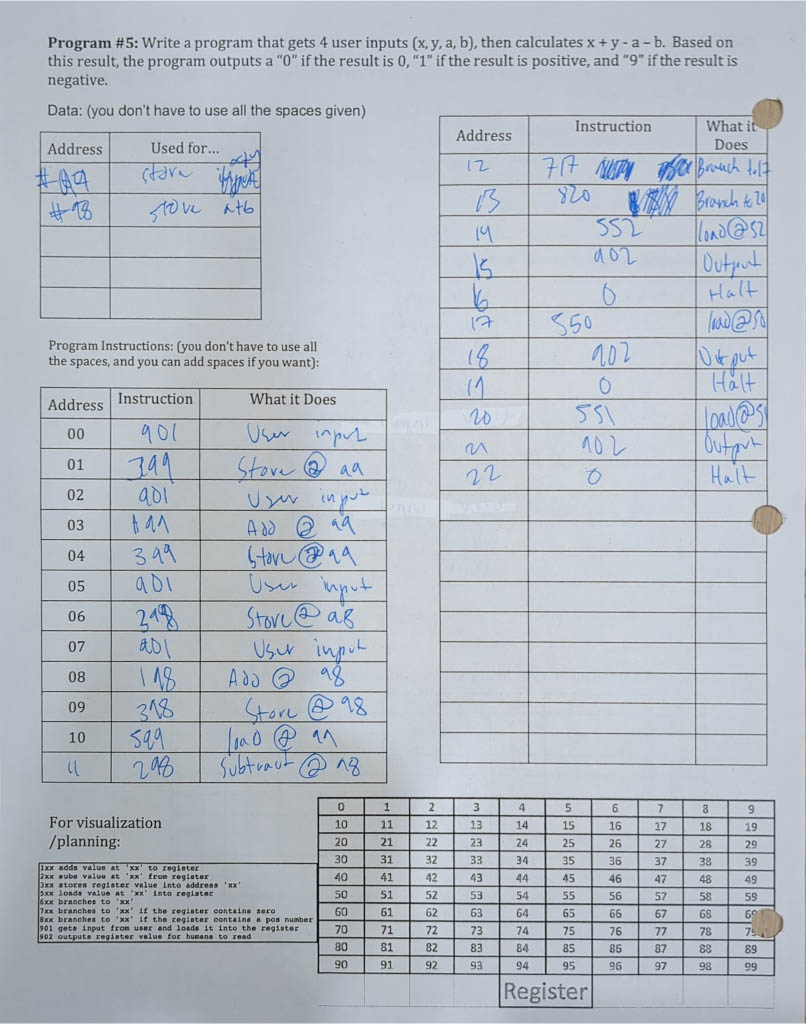 Program #5: Write a program that gets 4 user inputs (x, y, a, b), then calculates x + y - a – b. Based on
this result, the program outputs a "0" if the result is 0, "1" if the result is positive, and "9" if the result is
negative.
Data: (you don't have to use all the spaces given)
Address Used for...
#99 store x+y
#98 store a+b
Program Instructions: (you don't have to use all
the spaces, and you can add spaces if you want):
Address Instruction What it Does
00 901 User input
01 399 Store @ 99
02 901 User input
03 199 Add @ 99
04 399 Store @ 99
05 901 User input
06 398 Store @ 98
07 901 User input
08 198 Add @ 98
09 398 Store @ 98
10 599 load @ 99
11 298 Subtract @ 98
Address Instruction What it
Does
12 717 Branch to 17
13 820 Branch to 20
14 552 load @ 52
15 902 Output
16 0 Halt
17 550 load @ 50
18 902 Output
19 0 Halt
20 551 load @ 51
21 902 Output
22 0 Halt
For visualization
/planning:
1xx adds value at 'xx' to register
2xx subs value at 'xx' from register
3xx stores register value into address 'xx'
5xx loads value at 'xx' into register
6xx branches to 'xx'
7xx branches to 'xx' if the register contains zero
8xx branches to 'xx' if the register contains a pos number
901 gets input from user and loads it into the register
902 outputs register value for humans to read
0 1 2 3 4 5 6 7 8 9
10 11 12 13 14 15 16 17 18 19
20 21 22 23 24 25 26 27 28 29
30 31 32 33 34 35 36 37 38 39
40 41 42 43 44 45 46 47 48 49
50 51 52 53 54 55 56 57 58 59
60 61 62 63 64 65 66 67 68 69
70 71 72 73 74 75 76 77 78 79
80 81 82 83 84 85 86 87 88 89
90 91 92 93 94 95 96 97 98 99
Register